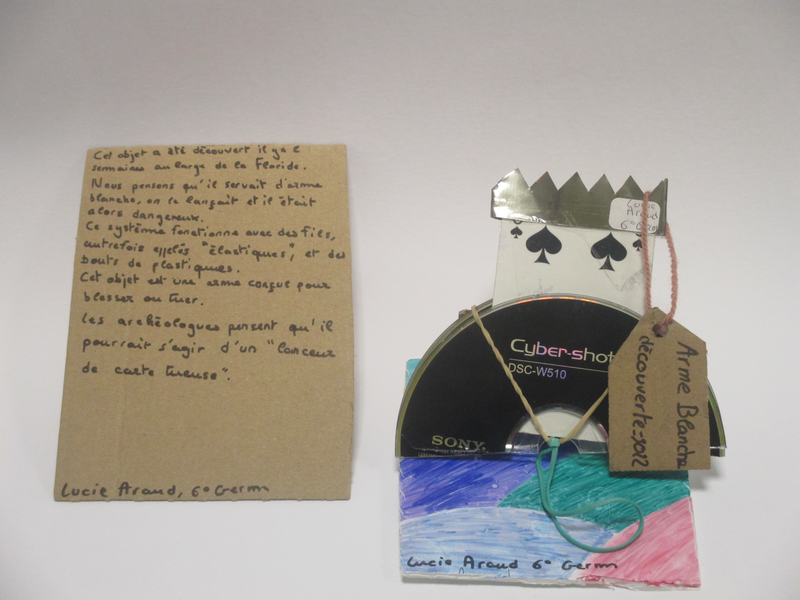 Cet objet a été découvert il y a 2
semaines au large de la Floride.
Nous pensons qu'il servait d'arme
blanche, on le lançait et il était
alors dangereux.
Ce système fonctionne avec des fils,
autrefois appelés "élastiques", et des
bouts de plastiques.
Cet objet est une arme conçue pour
blesser ou tuer.
Les archéologues pensent qu'il
pourrait s'agir d'un "lanceur
de carte tueuse".
Lucie Araud, 6° Germ
Lucie
Araud
Cyber-shot
DSC-W510
SONY
Arme Blanche
découverte=2012
Lucie Araud 6° Germ